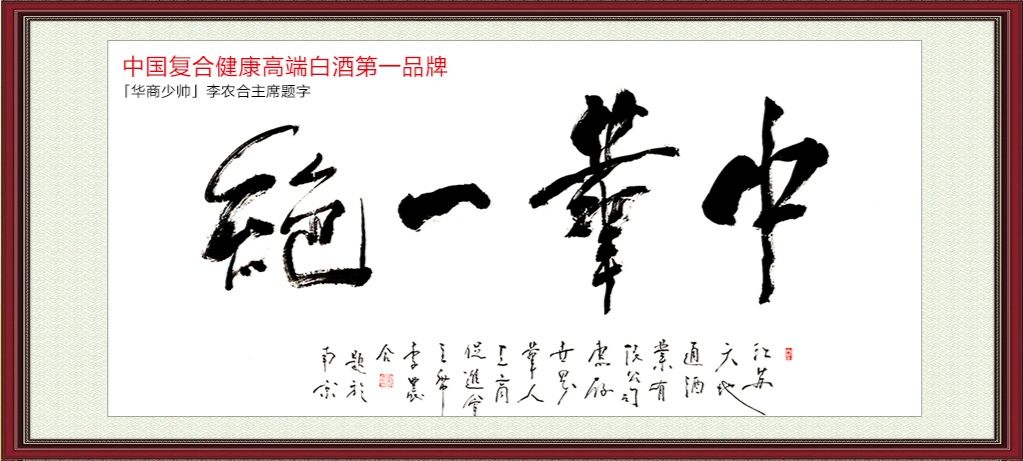 中国复合健康高端白酒第一品牌
「华商少帅」李农合主席题字
中華一絕
江苏
天地
通酒
業有
限公司
惠存
世界
華人
工商
促進會
主席
李農
合
題於
南京